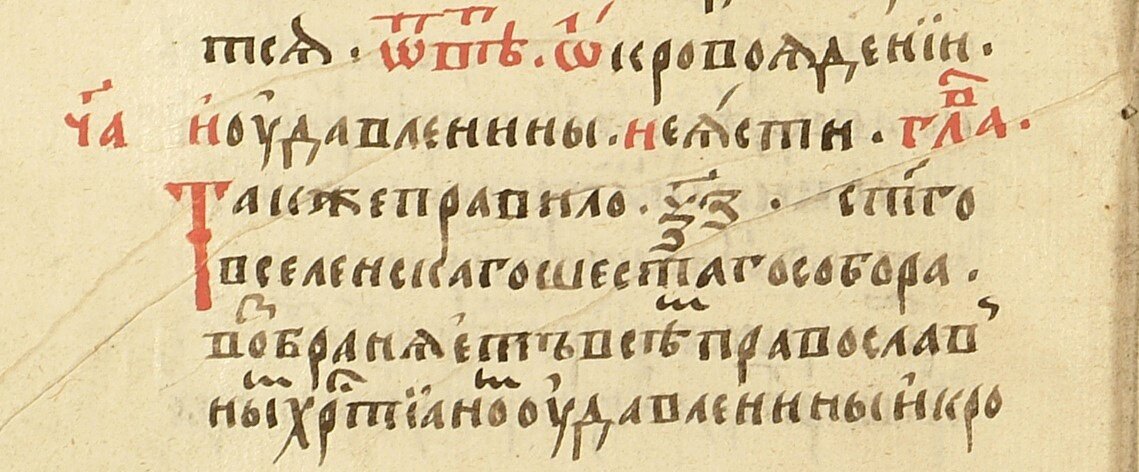 тсѧ . ѿвⷮѣ . ѡ҆ кровоѧденїи .
ч҃а и҆ оу давленины . не ꙗ҆сти . глⷡ҇а .
Также правило . ѯ҃з . ст҃го
вселенскаго шестаго собора .
воⷥбранѧетъ всѣⷨ правослаⷡ
ныⷨ хрⷭ҇тїаноⷨ оу давленины и҆ кро